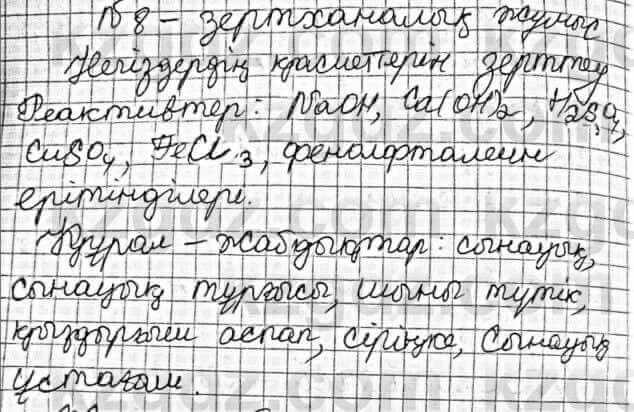 №8 - зертханалық жұмыс
Негіздердің қасиеттерін зерттеу
Реактивтер: NaOH, Ca(OH)2, H2SO4,
CuSO4, FeCl3, фенолфталеин
ерітінділері.
Құрал - жабдықтар: сынауық,
сынауық тұрғысы, шыны түтік,
қыздырғыш аспап, сіріңке, Сынауық
ұстағыш.